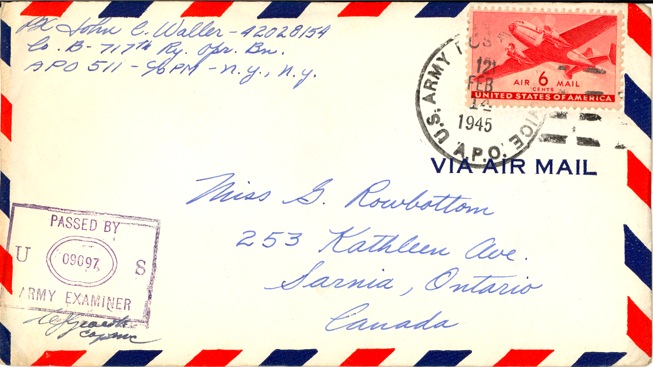 Pvt John C. Waller - 42028154
Co. B - 717th Ry. Opr. Bn.
APO 511 - c/o PM - N.Y., N.Y.
U.S. ARMY POSTAL SERVICE
A.P.O.
12
FEB
14
1945
AIR 6 MAIL
CENTS
UNITED STATES OF AMERICA
VIA AIR MAIL
Miss G. Rowbottom
253 Kathleen Ave.
Sarnia, Ontario
Canada
PASSED BY
U 09097 S
ARMY EXAMINER